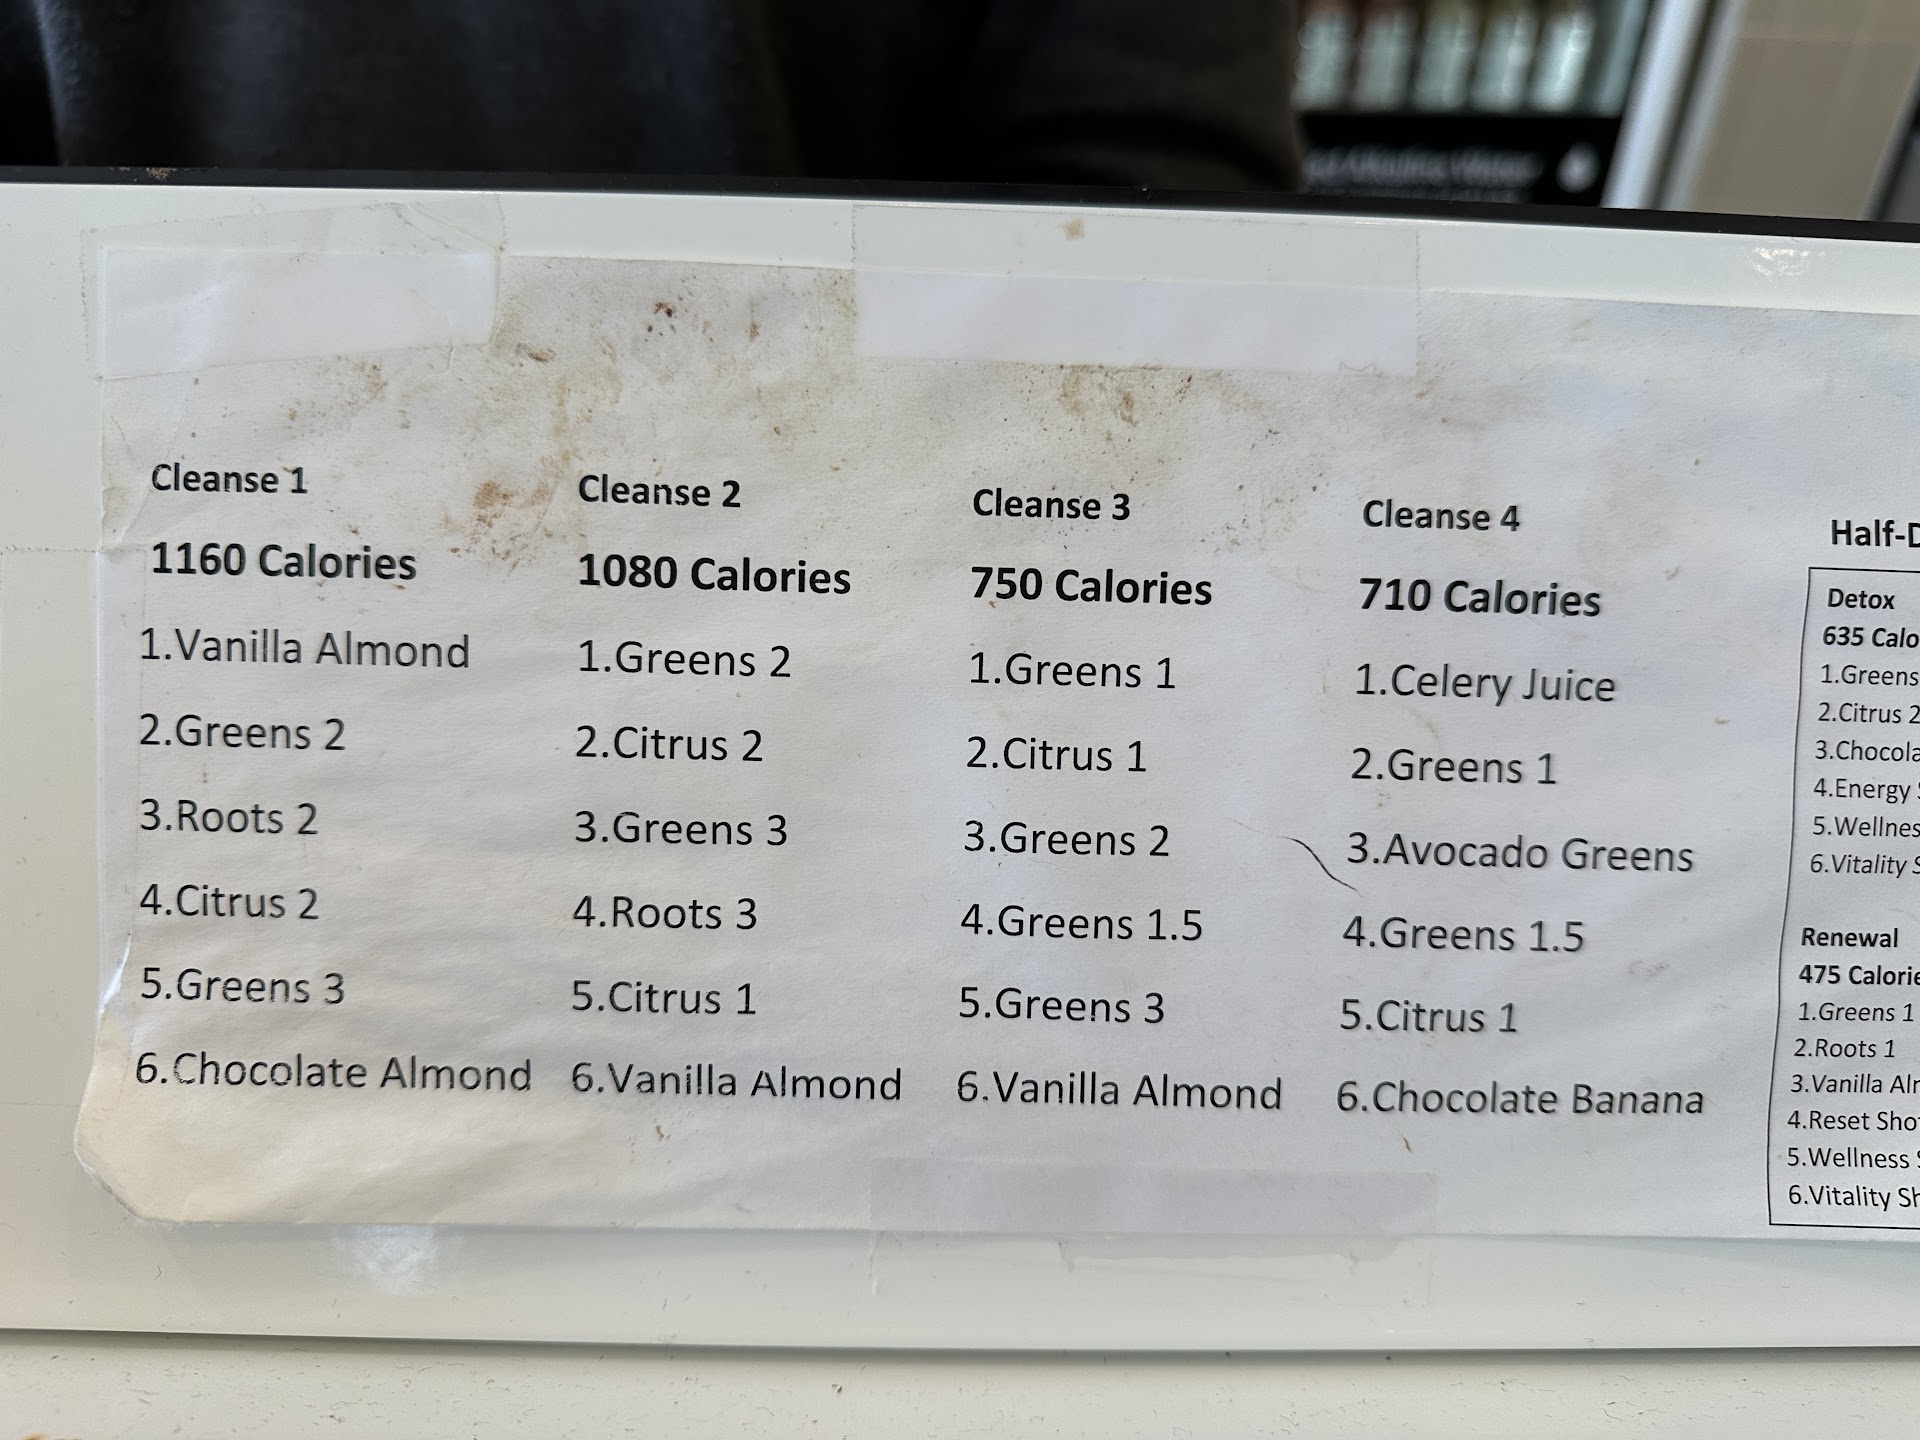 Cleanse 1
1160 Calories
1.Vanilla Almond
2.Greens 2
3.Roots 2
4.Citrus 2
5.Greens 3
6.Chocolate Almond
Cleanse 2
1080 Calories
1.Greens 2
2.Citrus 2
3.Greens 3
4.Roots 3
5.Citrus 1
6.Vanilla Almond
Cleanse 3
750 Calories
1.Greens 1
2.Citrus 1
3.Greens 2
4.Greens 1.5
5.Greens 3
6.Vanilla Almond
Cleanse 4
710 Calories
1.Celery Juice
2.Greens 1
3.Avocado Greens
4.Greens 1.5
5.Citrus 1
6.Chocolate Banana
Half-D
Detox
635 Calo
1.Greens
2.Citrus 2
3.Chocola
4.Energy
5.Wellnes
6.Vitality
Renewal
475 Calorie
1.Greens 1
2.Roots 1
3.Vanilla Alm
4.Reset Shot
5.Wellness
6.Vitality Sh
Alkaline Water